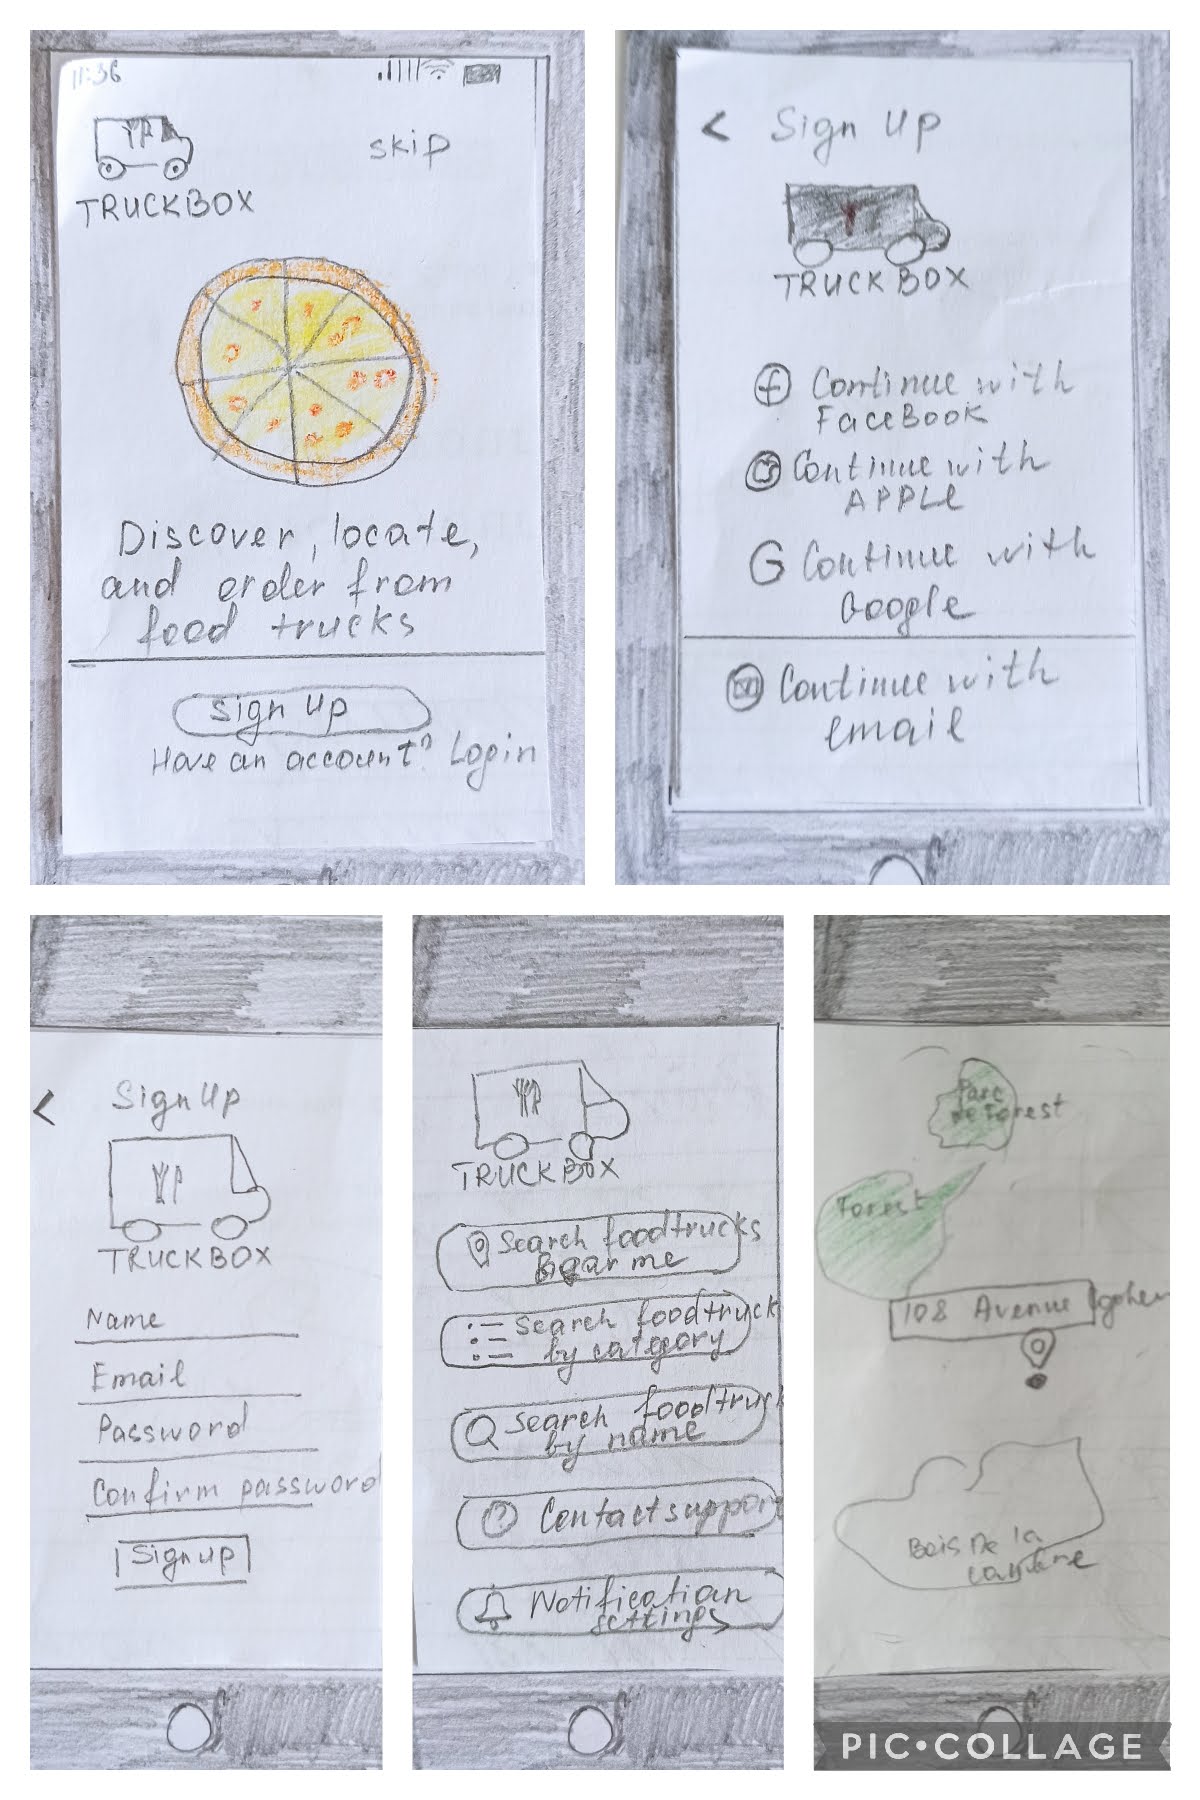 11:36
skip
TRUCKBOX
Discover, locate,
and order from
food trucks
Sign Up
Have an account? Login
< Sign Up
TRUCKBOX
f Continue with
FaceBook
Continue with
APPLE
G Continue with
Google
Continue with
email
< Sign Up
TRUCKBOX
Name
Email
Password
Confirm password
Sign up
TRUCKBOX
Search foodtrucks
me
Search foodtruck
by category
Search foodtruck
by name
? Contact support
Notification
settings
Parc
de Forest
Forest
108 Avenue
Bois De la
PIC•COLLAGE